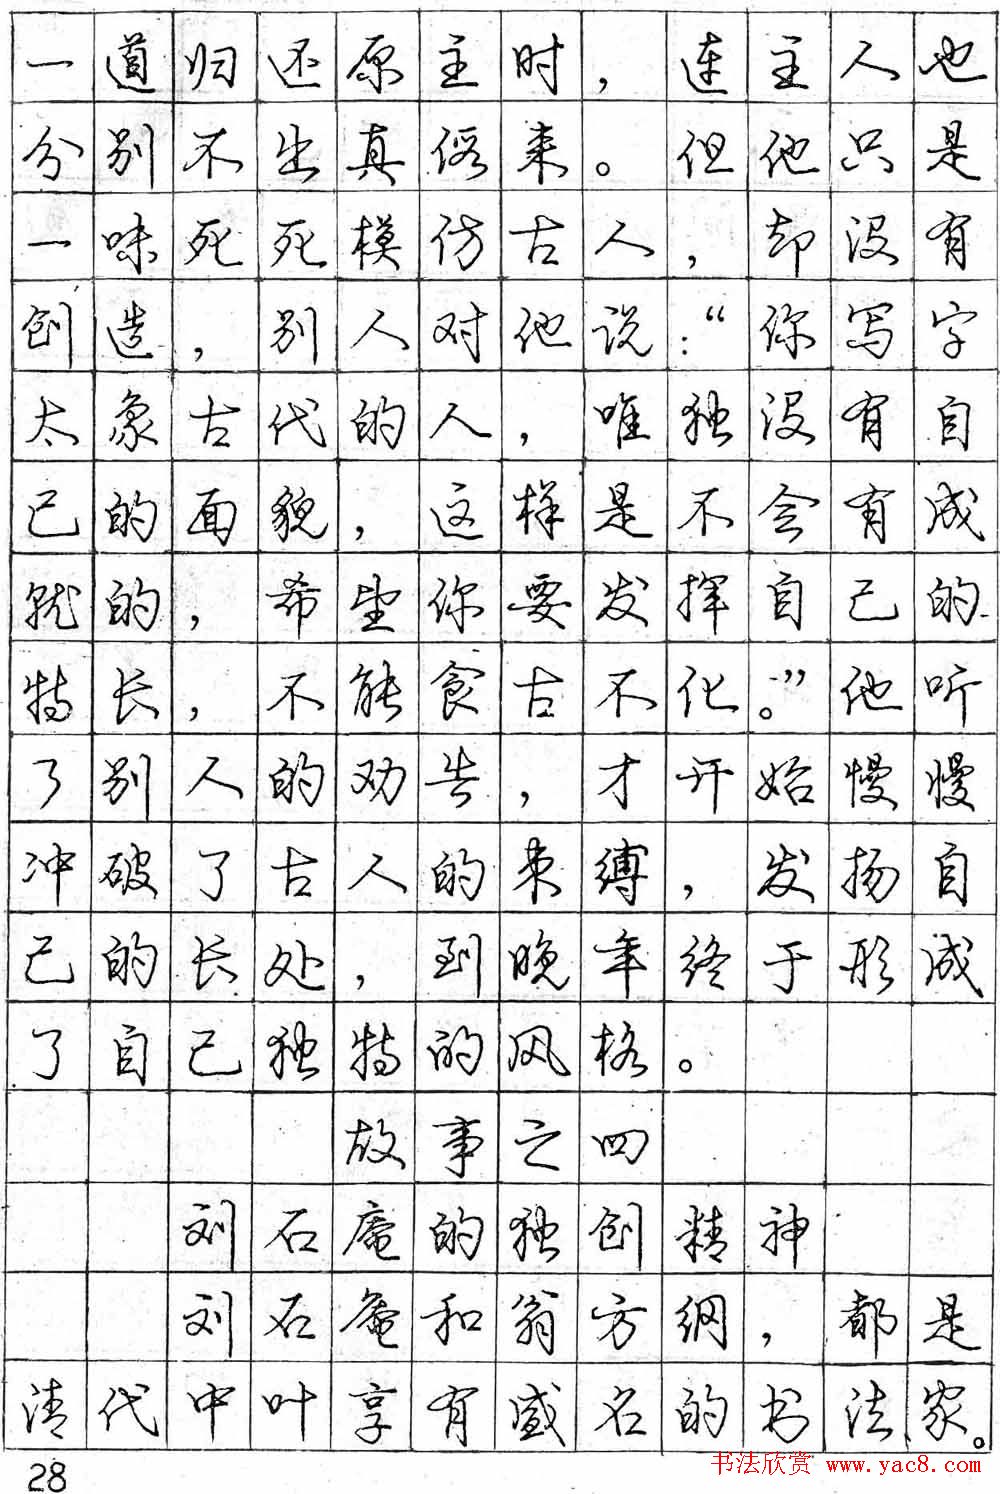 一道归还原主时，连主人也
分别不出真假来。但他只是
一味死死模仿古人，却没有
创造，别人对他说：“你写字
太象古代的人，唯独没有自
己的面貌，这样是不会有成
就的，希望你要发挥自己的
特长，不能食古不化。”他听
了别人的劝告，才开始慢慢
冲破了古人的束缚，发扬自
己的长处，到晚年终于形成
了自己独特的风格。
故事之四
刘石庵的独创精神
刘石庵和翁方纲，都是
清代中叶享有盛名的书法家。
28
书法欣赏 www.yac8.com